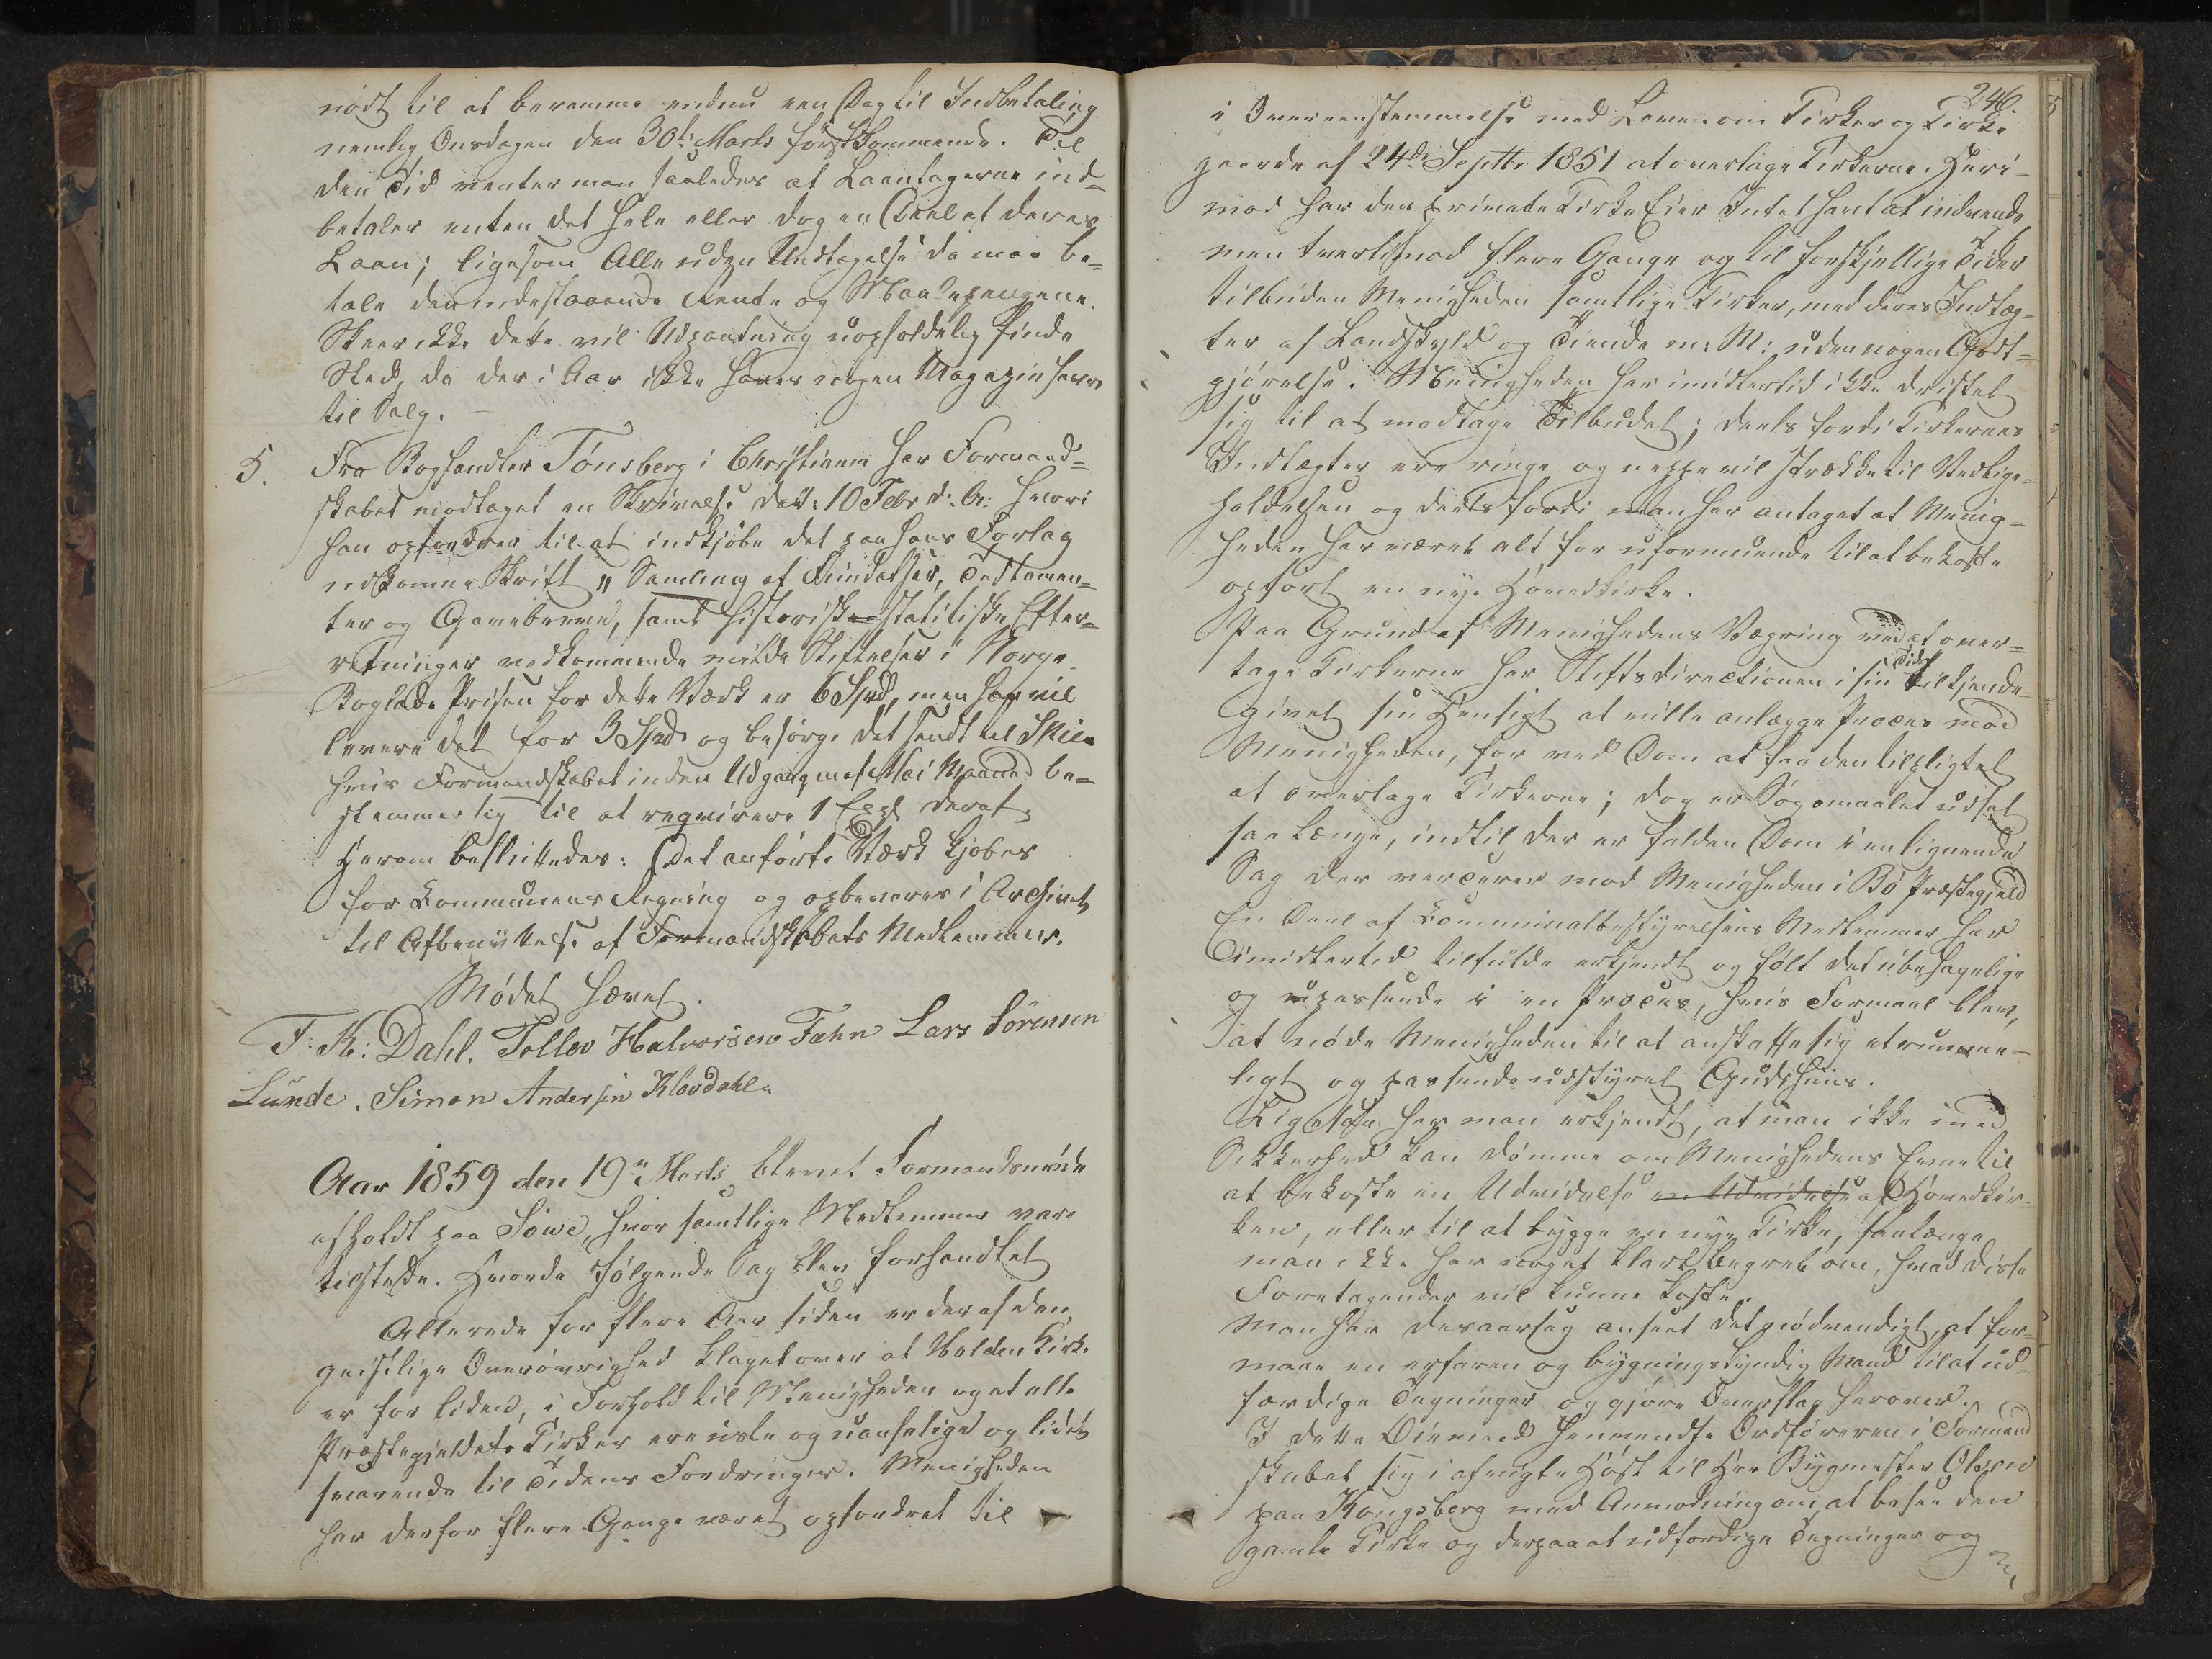 nødt til at beramme endnu een Dag til Indbetaling
nemlig Onsdagen den 30te Marts førstkommende. Til
den Tid venter man saaledes at Laantagerne ind=
betaler enten det hele eller dog en Deel af deres
Laan; ligesom Alle uden Undtagelse da maa be=
tale den indestaaende Rente og Maalepengene.
Skeer ikke dette vil Udpantning uopholdelig finde
Sted, da der i Aar ikke haves nogen Magazinhavre
til Salg.
5. Fra Boghandler Tønsberg i Christiania har Formand=
skabet modtaget en Skrivelse dat: 10 Febr d: A: hvori
han opfordrer til at indkjøbe det paa hans Forlag
udkomne Skrift „Samling af Fundatser, Testamen=
ter og Gavebreve, samt historisk statistiske Efter=
retninger vedkommende milde Stiftelser i Norge.
Boglade Prisen for dette Værk er 6 Spd, men han vil
levere det for 3 Spd og besørge det sendt til Skien
hvis Formandskabet inden Udgangen af Mai Maaned be=
stemmer sig til at reqvirere 1 Expl deraf.
Herom besluttedes: Det anførte Værk kjøbes
for Kommunens Regning og opbevares i Archivet
til Afbenyttelse af Formandskabets Medlemmer.
Mødet hævet.
F. K: Dahl. Tollev Halvorsen Fæhn Lars Sörensen
Lunde. Simon Andersen Klovdahl.
Aar 1859 den 19de Marts blevet Formandsmøde
afholdt paa Søwe, hvor samtlige Medlemmer vare
tilstede. Hvorda følgende Sag blev forhandlet
Allerede for flere Aar siden er der af den
geistlige Overøvrighed klaget over at Holden Kirke
er for liden, i Forhold til Menigheden og at alle
Præstegjeldets Kirker ere usle og uanselige og lidet
svarende til Tidens Fordringer. Menigheden
har derfor flere Gange været opfordret til
246.
i Overeensstemmelse med Loven om Kirker og Kirke
gaarde af 24de Septbr 1851 at overtage Kirkerne. Heri=
mod har den private Kirke Eier Intet havt at indvende
men tvertimod flere Gange og til forskjellige Tider
tilbuden Menigheden samtlige Kirker, med deres Indtæg=
ter af Landskyld og Tiende m: M: uden nogen Godt=
gjørelse. Menigheden har imidlertid ikke dristet
sig til at modtage Tilbudet; deels fordi Kirkernes
Indtægter ere ringe og neppe vil strække til Vedlige=
holdelsen og deels fordi man har antaget at Menig=
heden har været alt for uformuende til at bekoste
opført en nye Hovedkirke.
Paa Grund af Menighedens Vægring ved at over=
tage Kirkerne har Stiftsdirectionen i sin Tid tilkjende=
givet sin Hensigt at ville anlægge Proces mod
Menigheden, for ved Dom at faa den tilpligtet
at overtage Kirkerne; dog er Søgsmaalet udsat
saa længe, indtil der er falden Dom i en lignende
Sag der verserer mod Menigheden i Bø Præstegjeld
En Deel af Kommunalbestyrelsens Medlemmer har
imidlertid tilfulde erkjendt og følt det ubehagelige
og upassende i en Proces, hvis Formaal blev,
at nøde Menigheden til at anskaffe sig et rumme=
ligt og passende udstyret Gudshuus.
Ligesaa har man erkjendt, at man ikke med
Sikkerhed kan dømme om Menighedens Evne til
at bekoste en Udvidelse en Udvidelse af Hovedkir=
ken, eller til at bygge en nye Kirke, saalænge
man ikke har noget klart begreb om, hvad disse
Foretagender vil kunne koste.
Man har desaarsag anseet det nødvendigt, at for=
maae en erfaren og bygningskyndig Mand til at ud=
færdige Tegninger og gjøre Overslag herover.
I dette Øiemed henvendte Ordføreren i Formand
skabet sig i afvigte Høst til Hrr Bygmester Olsen
paa Kongsberg med Anmodning om at besee den
gamle Kirke og derpaa at udfærdige Tegninger og